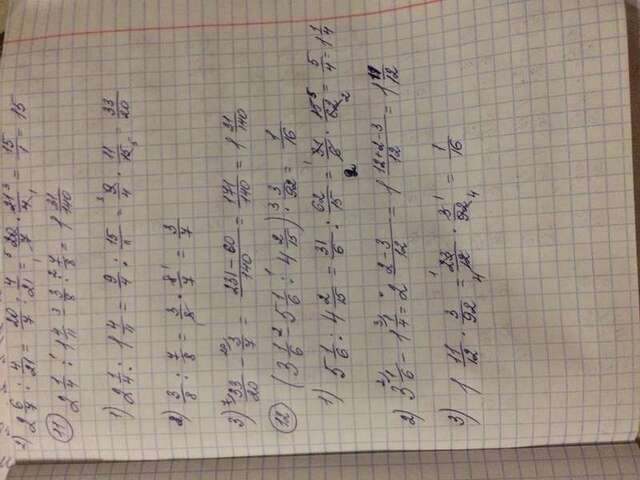 2) 2 6/7 : 4/21 = 20/7 : 4/21 = 20/7 · 21/4 = 15/1 = 15
11) 2 1/4 : 1 4/11 - 3/8 : 7/8 = 1 31/140
1) 2 1/4 : 1 4/11 = 9/4 : 15/11 = 9/4 · 11/15 = 33/20
2) 3/8 : 7/8 = 3/8 · 8/7 = 3/7
3) 33/20 - 3/7 = 231-60/140 = 171/140 = 1 31/140
12) (3 1/6 - 5 1/6 : 4 2/15) · 3/92 = 1/16
1) 5 1/6 : 4 2/15 = 31/6 : 62/15 = 31/6 · 15/62 = 5/4 = 1 1/4
2) 3 1/6 - 1 1/4 = 2 2-3/12 = 1 12+2-3/12 = 1 11/12
3) 1 11/12 · 3/92 = 23/12 · 3/92 = 1/16